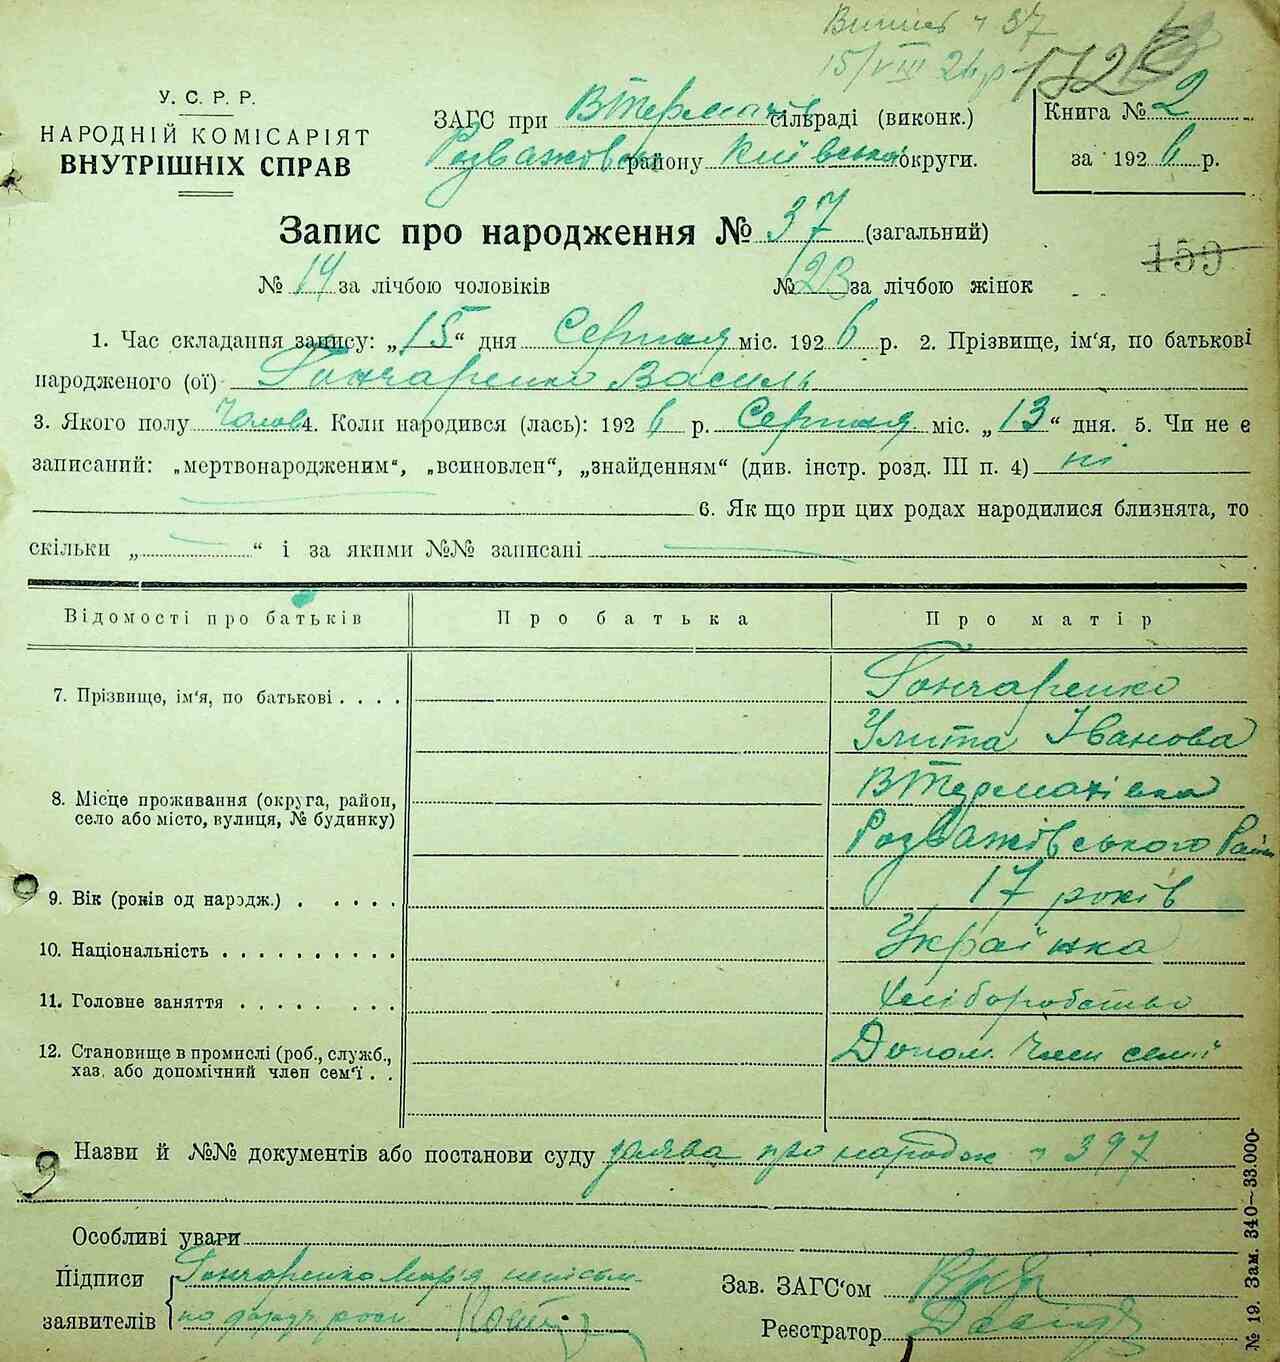 15/VIII 26 р
172
У. С. Р. Р.
НАРОДНІЙ КОМІСАРІЯТ
ВНУТРІШНІХ СПРАВ
ЗАГС при ВТермахів сільраді (виконк.)
Розважівськ району Київської округи.
Книга № 2
за 1926 р.
Запис про народження № 37 (загальний)
159
№ 14 за лічбою чоловіків № 23 за лічбою жінок
1. Час складання запису: „15“ дня Серпня міс. 1926 р. 2. Прізвище, ім‘я, по батькові
народженого (ої) Гончаренко Василь
3. Якого полу Чолов 4. Коли народився (лась): 1926 р. Серпня міс. „13“ дня. 5. Чи не є
записаний: „мертвонародженим“, „всиновлен“, „знайденням“ (див. інстр. розд. III п. 4) ні
6. Як що при цих родах народилися близнята, то
скільки „ “ і за якими №№ записані
Відомості про батьків Про батька Про матір
7. Прізвище, ім‘я, по батькові . . . . Гончаренко
Улита Іванова
8. Місце проживання (округа, район,
село або місто, вулиця, № будинку)
ВТермахівка
Розважівського Рай
9. Вік (років од нарэдж.) . . . . . 17 років
10. Національність . . . . . . . . . . Українка
11. Головне заняття . . . . . . . . Хліборобство
12. Становище в промислі (роб., служб.,
хаз. або допомічний член сем‘ї . .
Допом. Член семї
Назви й №№ документів або постанови суду заява про народж ч 397
Особливі уваги
Підписи Гончаренко Марія неписьм
заявителів
Зав. ЗАГС‘ом
Реєстратор
№ 19. Зам. 340—33.000-